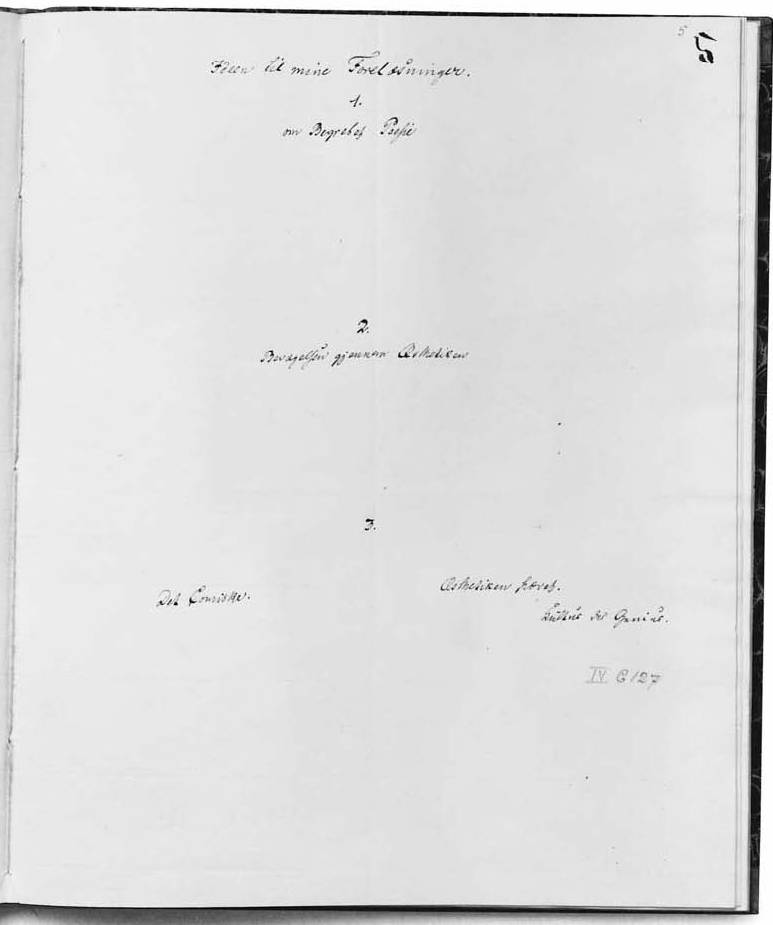 5
5
Ideen til mine Forelæsninger.
1.
om Begrebet Poesie
2.
Bevægelsen gjennem Æsthetiken
3.
Det Comiske.
Æsthetiken hævet.
Cultus des Genius.
IV C 127